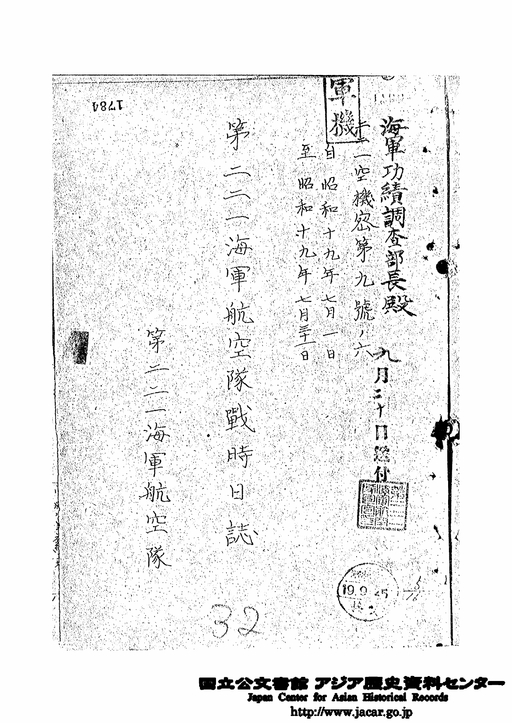 海軍功績調査部長殿
九月二十日送付
軍機
二二一空機密第九號ノ六
自昭和十九年七月一日
至昭和十九年七月三十一日
第二二一海軍航空隊戰時日誌
第二二一海軍航空隊
1784
32
国立公文書館 アジア歴史資料センター
Japan Center for Asian Historical Records
http://www.jacar.go.jp